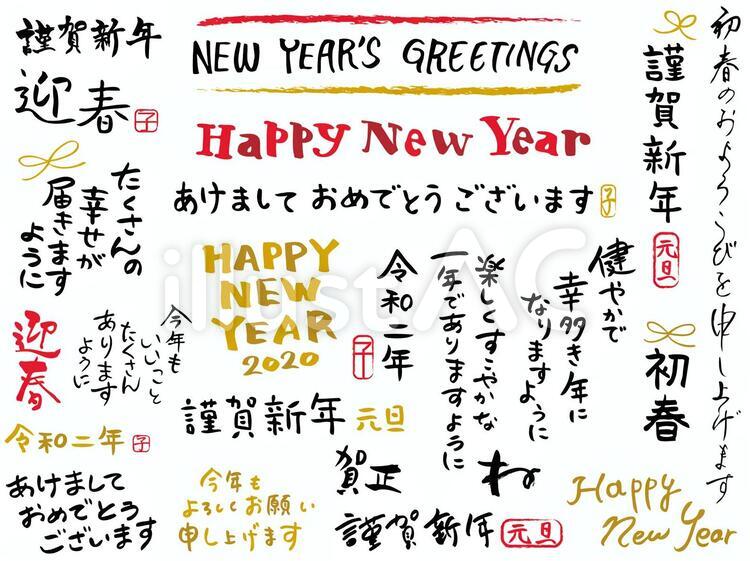 謹賀新年
迎春
子
NEW YEAR'S GREETINGS
Happy New Year
あけまして おめでとう ございます
子
謹賀新年
元旦
初春のおよろこびを申し上げます
たくさんの
幸せが
届きます
ように
HAPPY
NEW
YEAR
2020
令和二年
子
楽しくすこやかな
一年でありますように
健やかで
幸多き年に
なりますように
初春
迎春
今年も
いいこと
たくさん
あります
ように
令和二年
子
謹賀新年 元旦
あけまして
おめでとう
ございます
今年も
よろしくお願い
申し上げます
賀正
ね
謹賀新年
元旦
Happy
New Year
illustAC